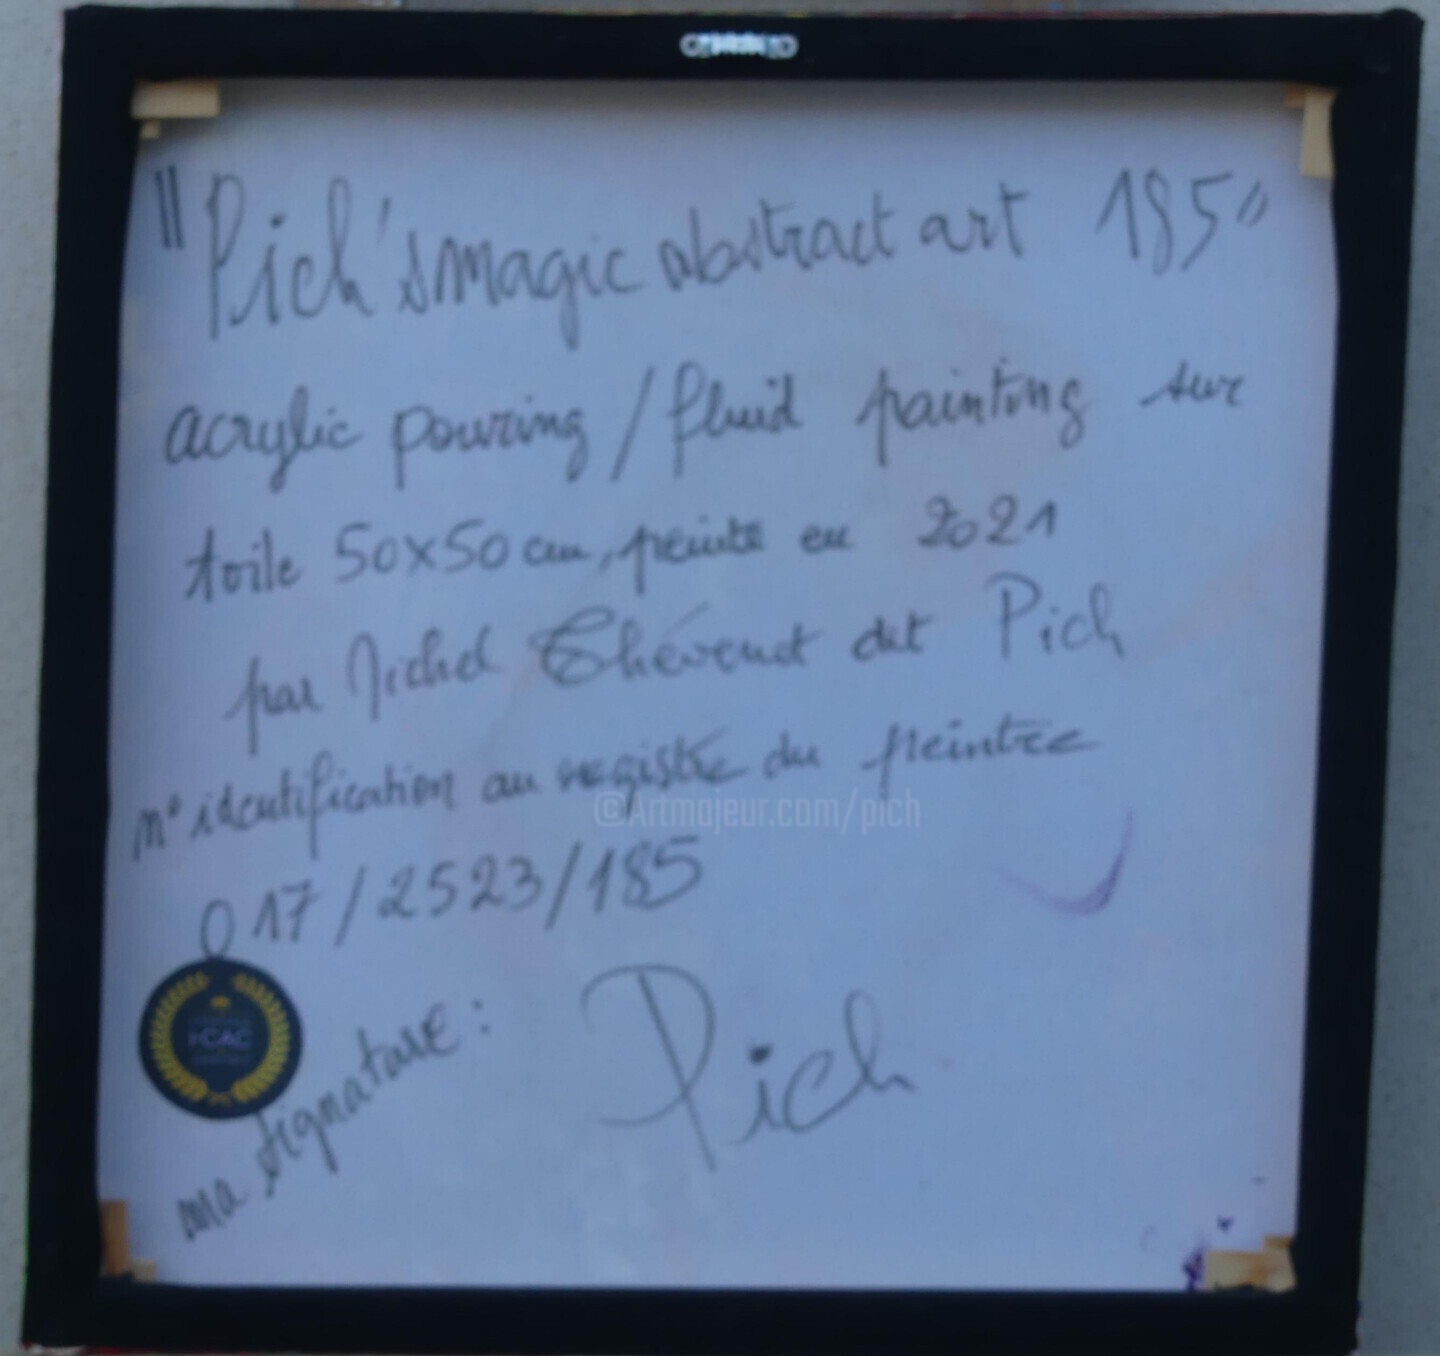 "Pich's magic abstract art 185"
acrylic pouring / fluid painting sur
toile 50x50 cm, peinte en 2021
par Michel Thévenot dit Pich
n° identification au registre du peintre
©Artmajeur.com/pich
017/2523/185
CAC
ma signature : Pich